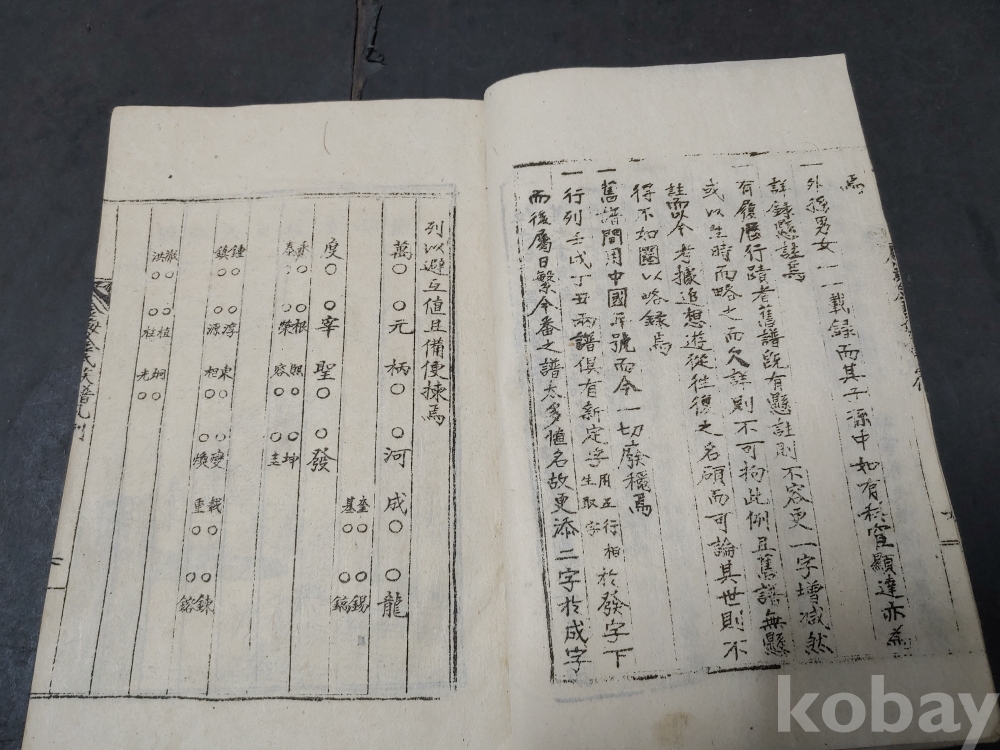 焉
一外孫男女一一載錄而其子孫中如有科宦顯達亦為
詳錄懸註焉
一有履歷行蹟者舊譜旣有懸註則不容更一字增减然
或以生時而略之而欠詳則不可拘此例且舊譜無懸
註而以今考據追想遊從往復之名碩而可論其世則不
得不如闕以略錄焉
一舊譜間用中國年號而今一切廢穩焉
一行列壬戌丁丑兩譜俱有新定字用五行相生取字於發字下
而後屬日繁今番之譜太多値名故更添二字於成字
列以避互値且備便揀焉
萬○ ○元 柄○ ○河 成○ ○龍
度○ ○宰 聖○ ○發 奎○ ○錫 基○ ○鎬
秉○ ○根 熙○ ○坤 載○ ○鍊
泰○ ○榮 容○ ○圭 重○ ○鎔
鍾○ ○淳 東○ ○燮
鎮○ ○源 相○ ○煥
○植 炯○
洪○ ○柱 光○
kobay